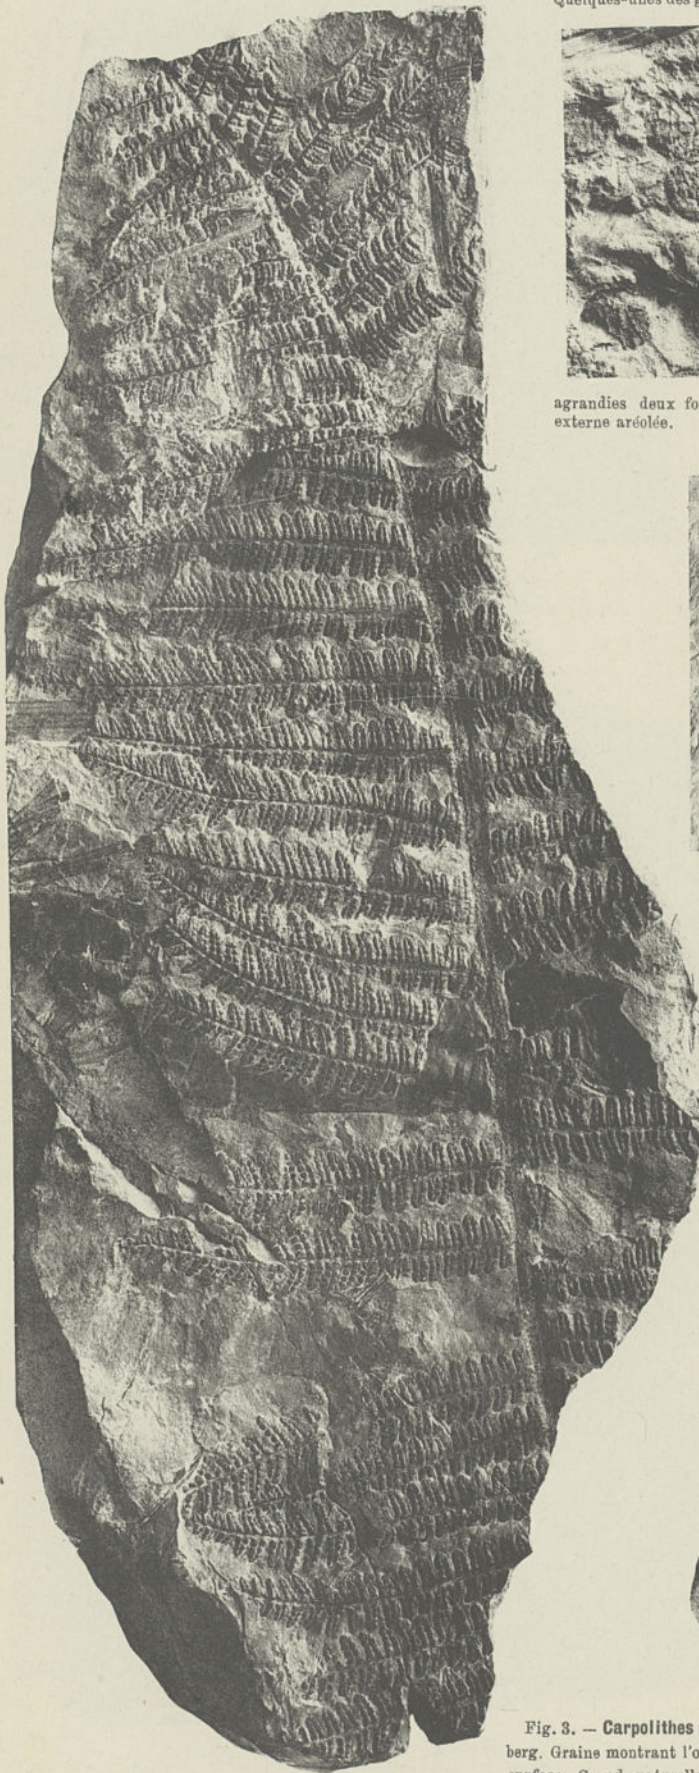 Quelques-unes des
agrandies deux
externe aréolée.
Fig. 3. — Carpolithes
berg. Graine montrant